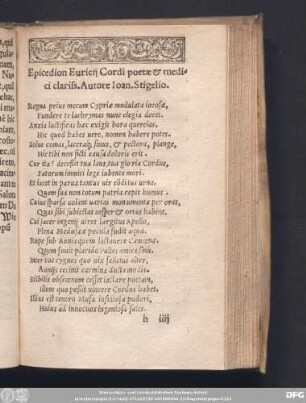 Epicedion Euricij Cordi poetæ & medi-
ci clariss. Autore Ioan. Stigelio.
Regna prius mecum Cypriæ modulata iocosæ,
Fundere te lachrymas nunc elegia decet.
Anxia luctificis hac exigit hora querelas,
Hic quod habes uere, nomen habere potes.
Solue comas, lacera sinus, & pectora, plange,
Hic tibi non ficti causa doloris erit.
decessit tua laus, tua gloria Cordus,
Fatorum immiti lege iubente mori.
Et iacet in parua tantus uir conditus urna.
Quem sua non totum patria cepit humus.
Cuius sparsa uolant uarias monumenta per oras,
Quas sibi subiectas uesper & ortus habent.
Cui iacer ingenij uires largitus Apollo,
Plena Medusææ pocula fudit aquæ.
Rupe sub Aonia quem lactauere Camœnæ
Quem fouit placido
Inter tot cygnos quo uix felicius alter,
Aonijs cecinit carmina docta modis.
Bilbilis obscœnum cesset iactare poetam,
Illum quo possit uincere Cordus habet,
Illius est tenero Musa infestiosa pudori,
Huius ad innocuos ingeniosa sales.
h iiij